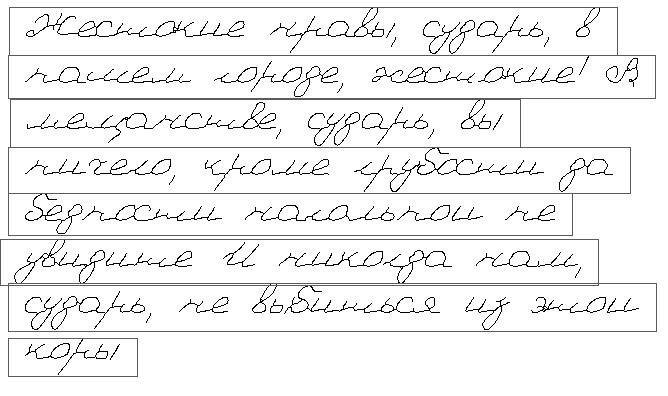 Жестокие нравы, сударь, в
нашем городе, жестокие! В
мещанстве, сударь, вы
ничего, кроме грубости да
бедности нагольной не
увидите И никогда нам,
сударь, не выбиться из этой
коры